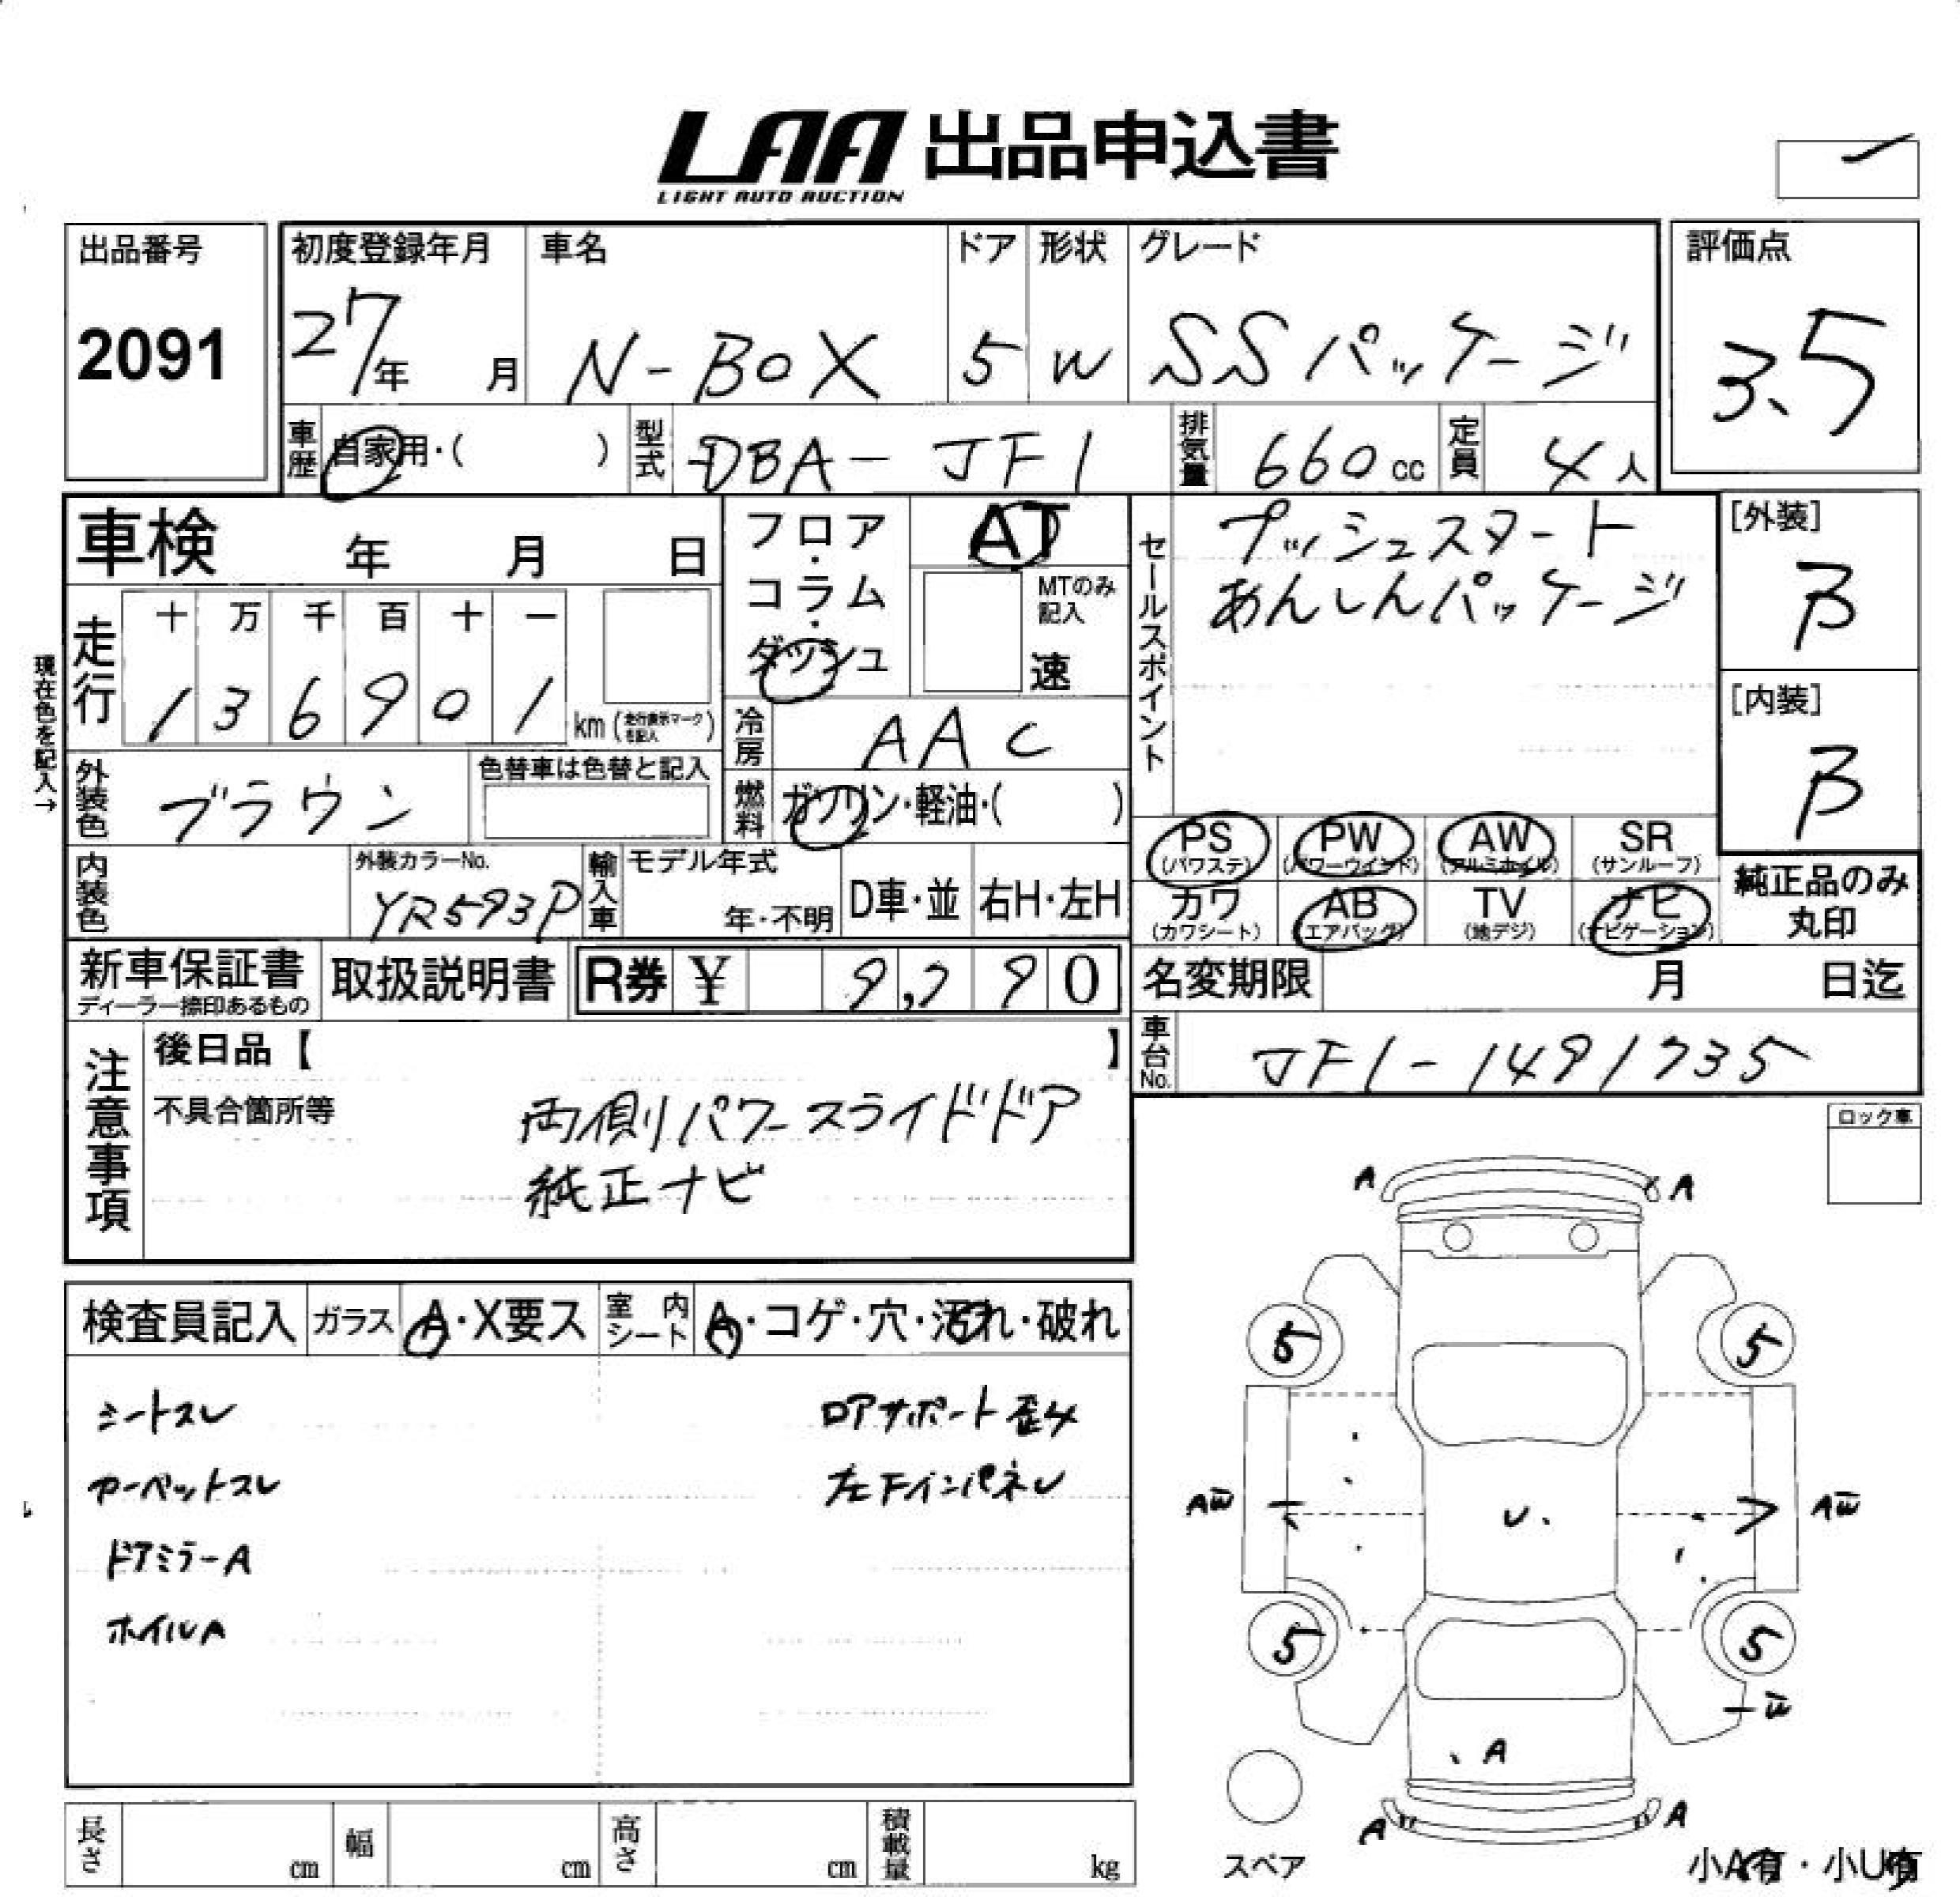 LAA 出品申込書
LIGHT AUTO AUCTION
出品番号
2091
初度登録年月
27年 月
車名
N-BOX
ドア
5
形状
W
グレード
SSパッケージ
評価点
3.5
車歴 自家用・( )
型式 DBA-JF1
排気量 660cc
定員 4人
車検 年 月 日
フロア・コラム・ダッシュ
AT
MTのみ記入
速
セールスポイント
プッシュスタート
あんしんパッケージ
[外装]
B
[内装]
B
現在色を記入→
走行
十 万 千 百 十 一
1 3 6 9 0 1 km (走行表示マークを記入)
冷房 AAC
外装色 ブラウン
色替車は色替と記入
燃料 ガソリン・軽油・( )
PS (パワステ)
PW (パワーウインド)
AW (アルミホイル)
SR (サンルーフ)
カワ (カワシート)
AB (エアバッグ)
TV (地デジ)
ナビ (ナビゲーション)
純正品のみ丸印
内装色
外装カラーNo.
YR593P
輸入車
モデル年式
年・不明
D車・並
右H・左H
新車保証書
ディーラー捺印あるもの
取扱説明書
R券 ¥ 9,790
名変期限 月 日迄
車台No. JF1-1491735
注意事項
後日品【 】
不具合箇所等
両側パワースライドドア
純正ナビ
ロック車
検査員記入
ガラス A・X要ス
室内シート A・コゲ・穴・汚れ・破れ
シートスレ
カーペットスレ
ドアミラーA
ホイルA
ロアサポート歪み
左FインパネU
A A
5 5
AW U AW
5 5
W
A
A A
スペア
小A有・小U有
長さ cm
幅 cm
高さ cm
積載量 kg